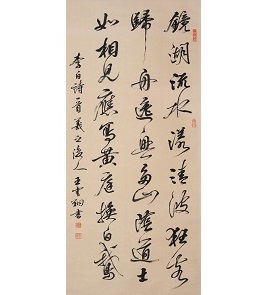 鏡湖流水漾清波狂客
歸舟逸興多山陰道士
如相見應寫黃庭換白鵝
李白詩一首羲之後人王書